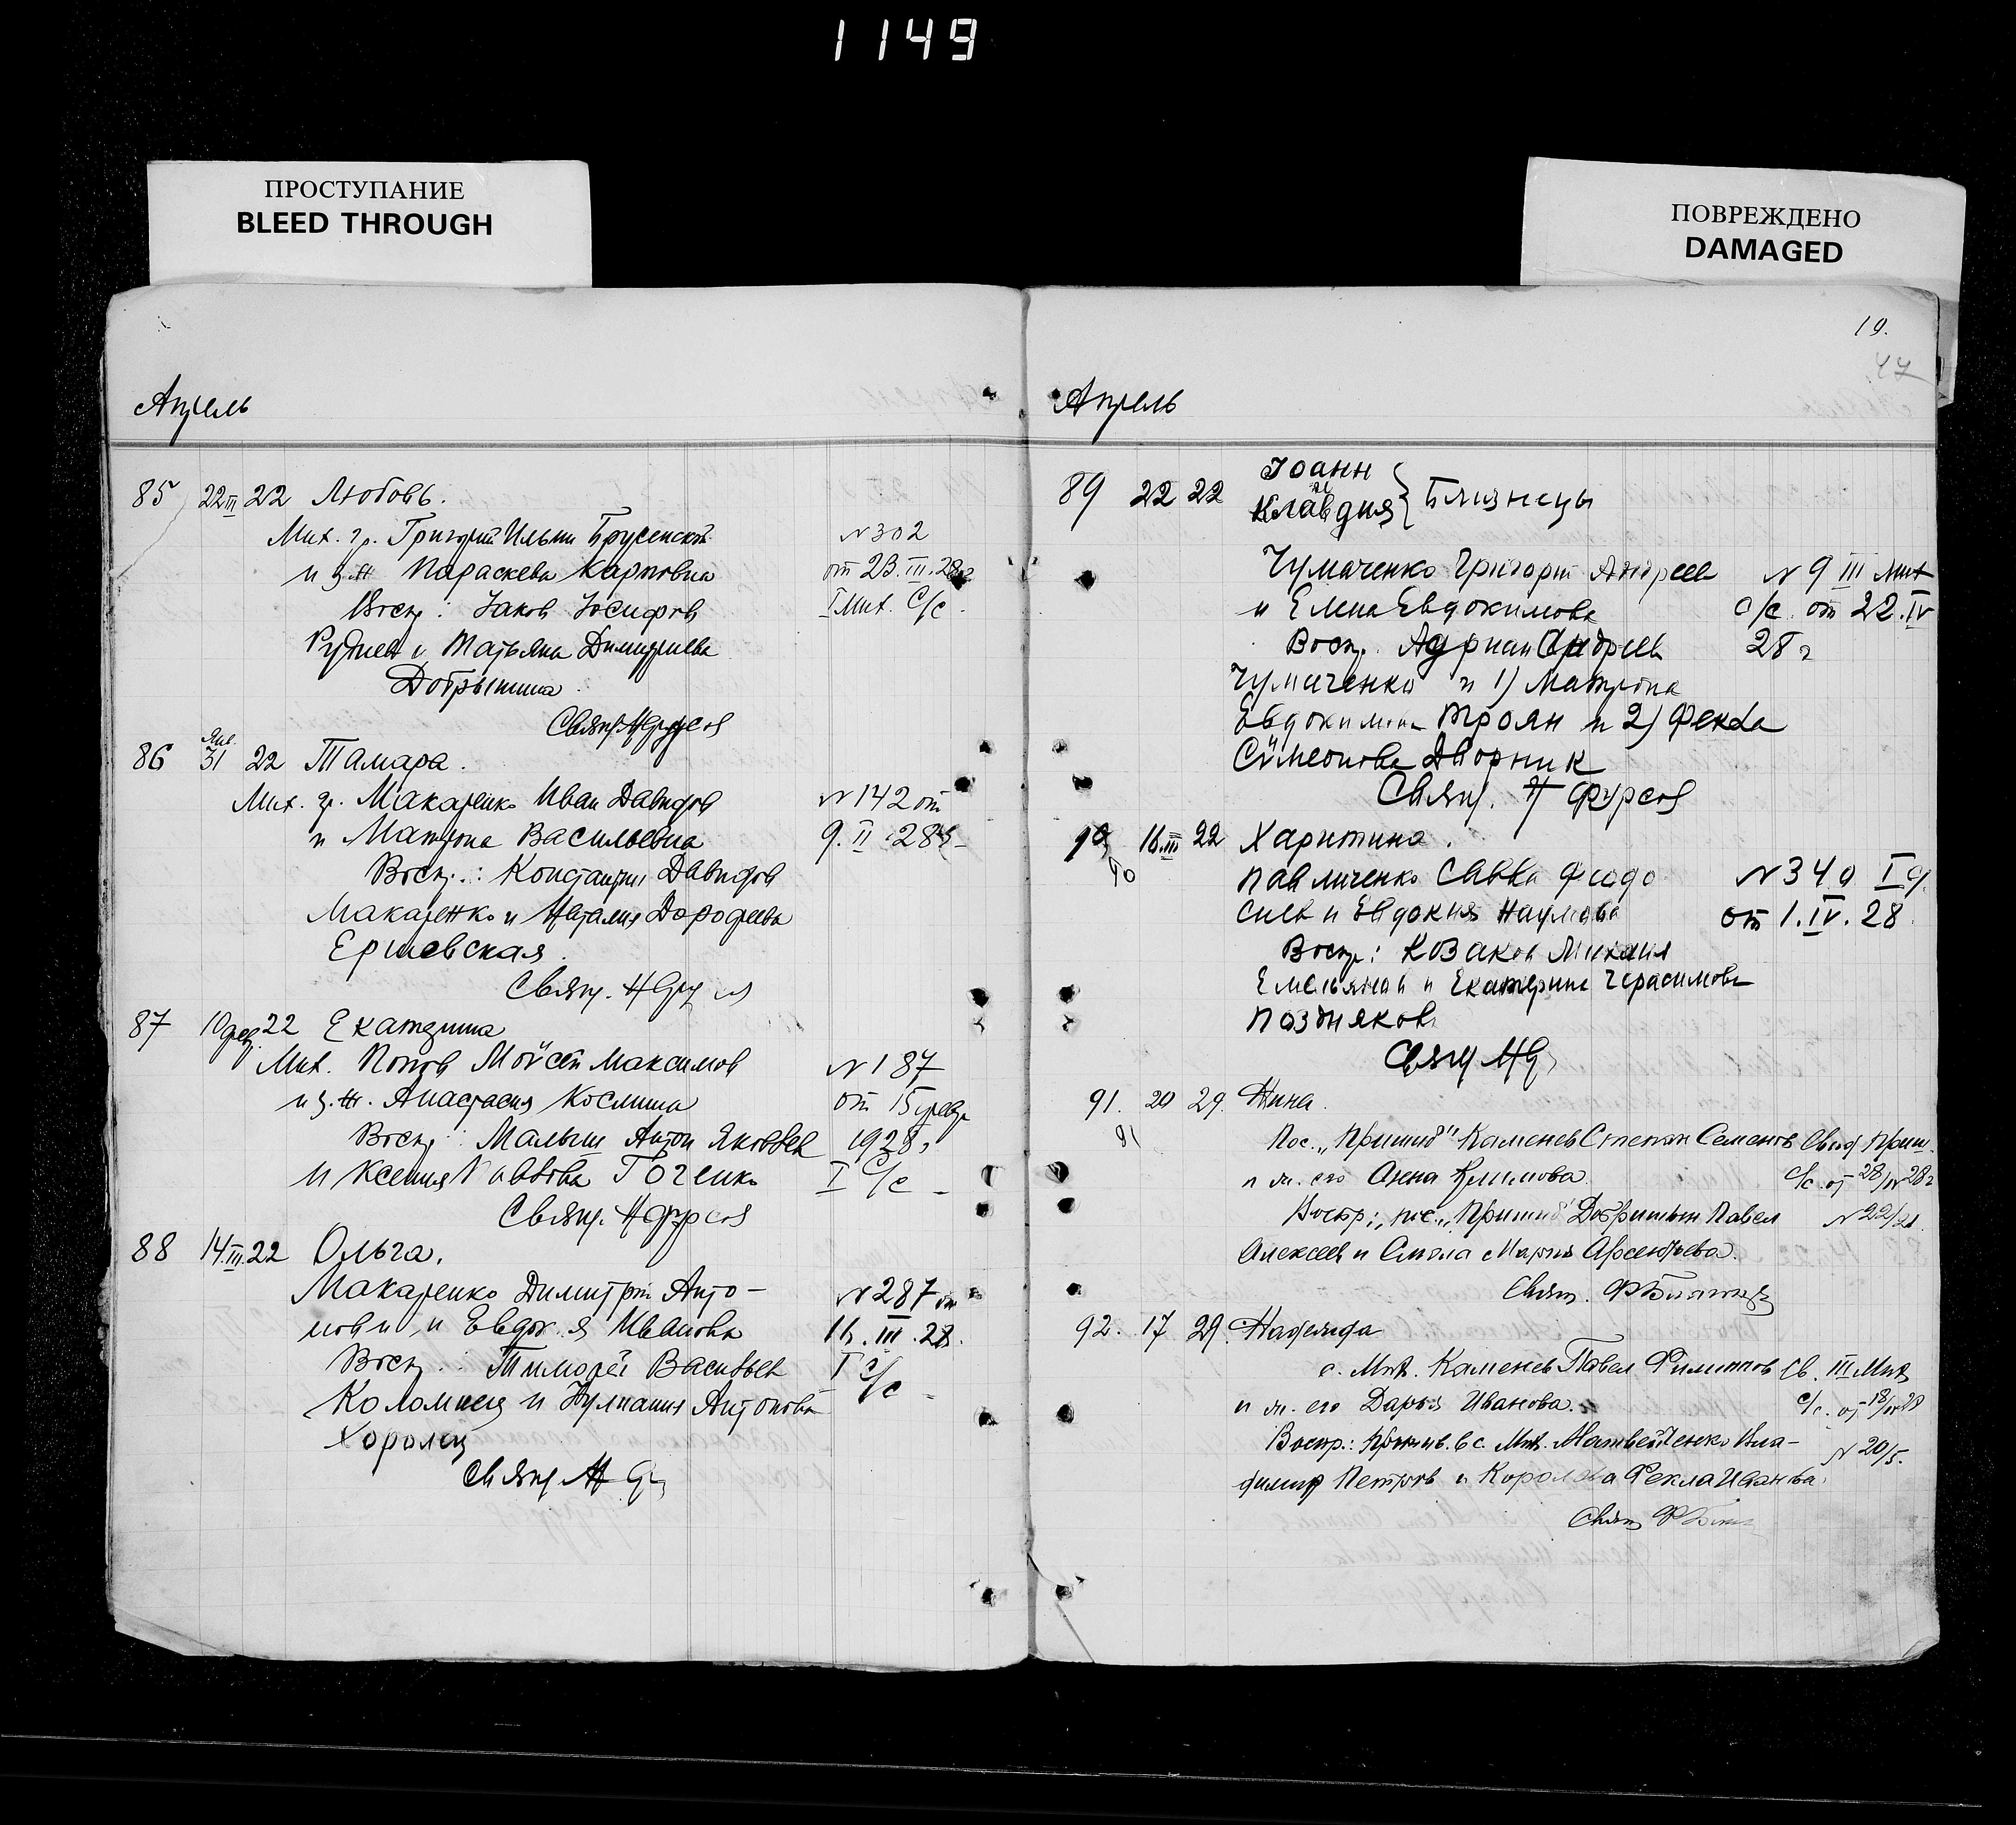 1149
ПРОСТУПАНИЕ
BLEED THROUGH
ПОВРЕЖДЕНО
DAMAGED
Апрель
85 22 III 22 Любовь.
Мих. гр. Григорий Ильин Брусенской № 302
и з. ж Параскева Карповна от 23.III.28 г
Воспр: Иаков Иосифов I Мих. С/с.
и Татьяна Димитриева
Добрынина
Свящ. Н Фурсов
86 Янв. 31 22 Тамара.
Мих. гр. Макаренко Иван Давидов № 142 от
и Матрона Васильевна 9.II.28
Воспр.: Константин Давидов
Макаренко и Наталия Дорофеева
Ершевская.
Свящ. Н Фурсов
87 10 фев. 22 Екатерина
Мих. Попов Моисей Максимов № 187
и з. ж. Анастасия Космина от 15 февр
Воспр: Малыш Антон Яковлев 1928 г
и Ксения Гоченко I С/с
Свящ. Н Фурсов
88 14.III.22 Ольга.
Макаренко Димитрий Анто- № 287 от
нович и Евдокия Иванова 16.III.28.
Воспр.: Тимофей Васильев I С/с
Коломиец и Иулиания Антонова
Хоролец
Свящ Н Ф
19.
47
Апрель
89 22 22 Иоанн
и
Клавдия } Близнецы
Чумаченко Григорий Андреев № 9 III Мих
и Елена Евдокимова С/с. от 22.IV
Воспр. Адриан Андреев 28 г
Чумаченко и 1) Матрона
Евдокимова Троян и 2) Фекла
Симеонова Дворник
Свящ. Н Фурсов
90 16.III 22 Харитина.
90
Павличенко Савва Феодо № 340 I
сиев и Евдокия Наумова от 1.IV.28
Воспр: Козаков Михаил
Емельянов и Екатерина Герасимова
Позднякова
Свящ Н Ф
91. 20 29. Нина.
91
Пос. „Пришиб" Каменев Степан Семенов Свид Приш.
и ж. его Анна Климова. С/с. от 28/IV 28 г
Воспр: пос. „Пришиб" Добрицын Павел № 22/21.
Алексеев и Мария Арсентьева.
Свящ.
92. 17 29. Надежда
с. Мих. Каменев Павел Филиппов Св. III Мих
и ж. его Дарья Иванова. С/с. от 18/IV 28
Воспр.: прожив. в с. Мих. Матвейченко Вла- № 20/5.
димир Петров и Королева Фекла Иванова.
Свящ